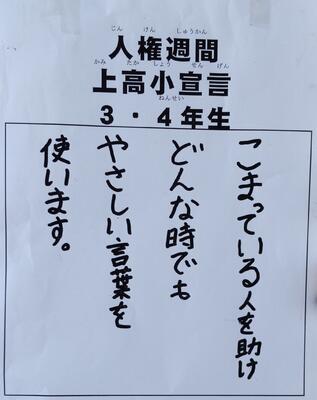 じんけんしゅうかん
人権週間
かみたかしょうせんげん
上高小宣言
ねんせい
３・４年生
こまっている人を助け
どんな時でも
やさしい言葉を
使います。